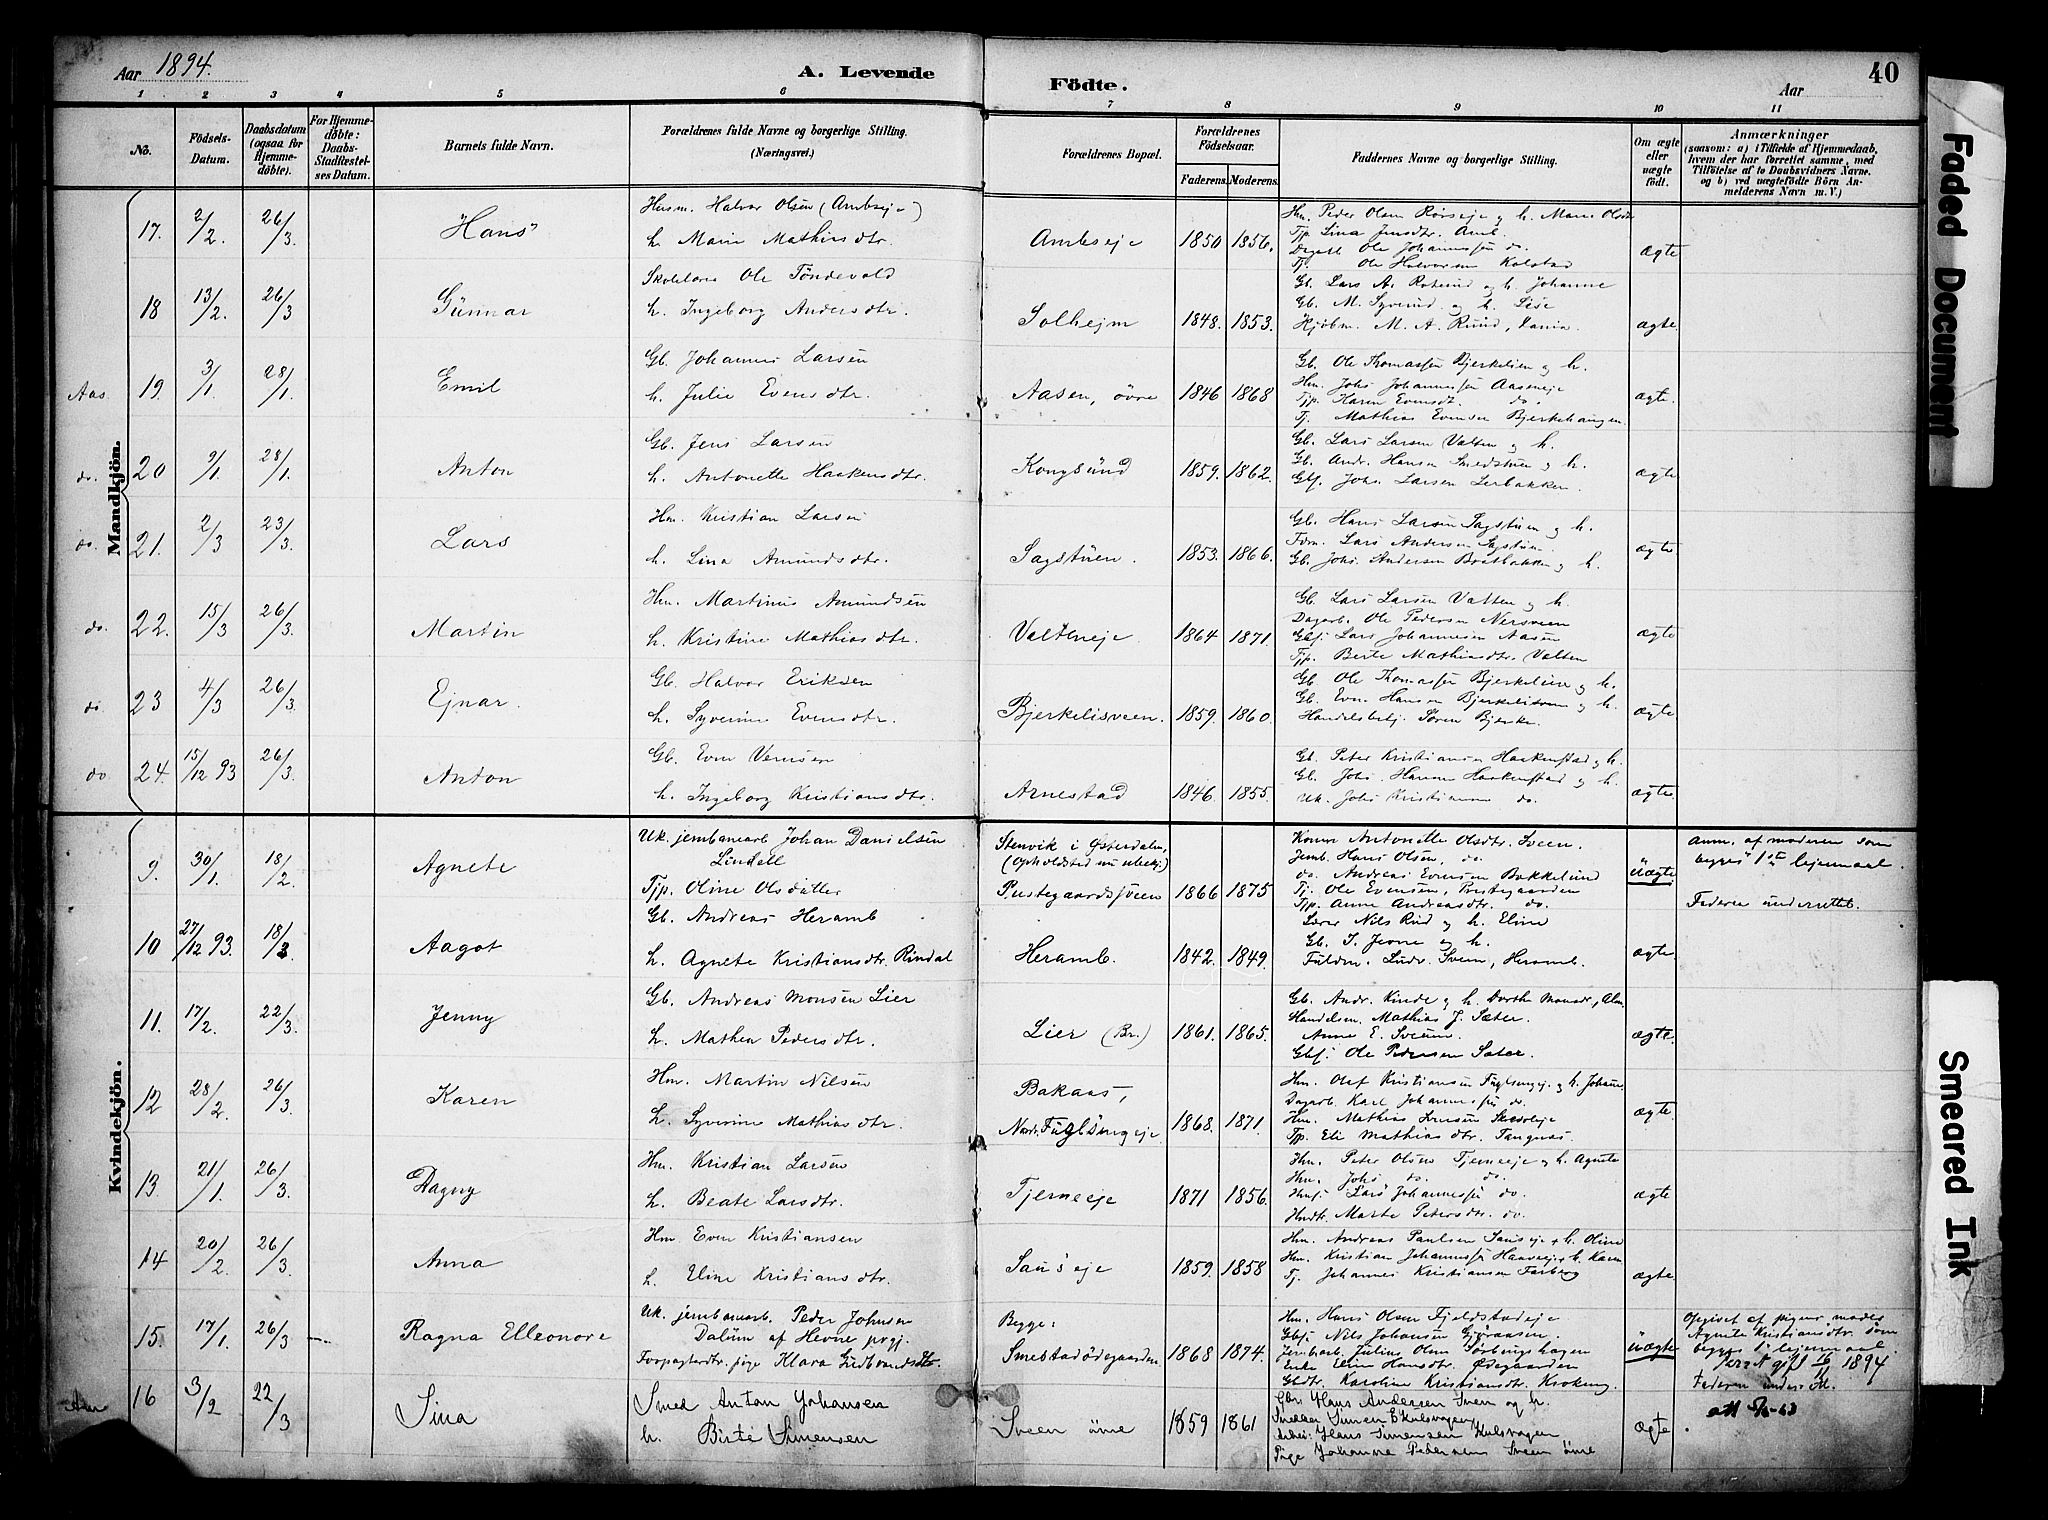 Aar 1894.
A. Levende
Födte.
Aar
40
1 2 3 4 5 6 7 8 9 10 11
No.
Födsels-Datum.
Daabsdatum (ogsaa for Hjemmedöbte).
For Hjemmedöbte: Daabs-Stadfæstelses Datum.
Barnets fulde Navn.
Forældrenes fulde Navne og borgerlige Stilling. (Næringsvei.)
Forældrenes Bopæl.
Forældrenes Födselsaar.
Faderens. Moderens.
Faddernes Navne og borgerlige Stilling.
Om ægte eller uægte födt.
Anmærkninger
(saasom: a) i Tilfælde af Hjemmedaab, hvem der har forrettet samme, med Tilföielse af to Daabsvidners Navne. og b) ved uægtefödte Börn Anmelderens Navn m. V.)
Mandkjön.
17. 2/2. 26/3. Hans Husm. Halvor Olsen (Ambseje)
h. Marie Mathiasdtr. Ambseje 1850 1856. ægte
Hm. Peder Olsen Rörseje og h. Mari Olsdtr
Tjp. Lina Jensdtr. Amb.
Dagarb. Ole Johannessen do.
Tj. Ole Halvorsen Kolstad
18 13/2. 26/3 Gunnar Skolelærer Ole Töndevold
h. Ingeborg Andersdtr. Solhejm 1848. 1853. ægte
Gb. Lars A. Roterud og h. Johanne
Gb. M. Syverud og h. Lise
Kjöbm. M. A. Ruud,
Aas. 19. 3/1. 28/1. Emil Gb. Johannes Larsen
h. Julie Evensdtr. Aasen, övre 1846 1868 ægte.
Gb. Ole Thomassen Bjerkelien og h.
Hm. Johs Johannessen Aaseneje
Tjp. Karen Evensdt. do.
Tj. Mathias Evensen Bjerkehaugen.
do. 20 9/1. 28/1. Anton Gb. Jens Larsen
h. Antonette Haakensdtr. Kongsund 1859. 1862. ægte
Gb. Lars Larsen Valten og h.
Gb. Andr. Hansen Smedstuen og h.
Gbs. Johs. Larsen Lerbakken.
do. 21. 2/3 23/3. Lars Hm. Kristian Larsen
h. Lina Amundsdtr. Sagstuen. 1853. 1866. ægte
Gb. Hans Larsen Sagstuen og h.
Fdm. Lars Andersen Sagstuen.
Gb. Johs. Andersen Bratbakken og h.
do. 22. 15/3 26/3. Martin Hm. Martinus Amundsen
h. Kristine Mathiasdtr. Valteneje 1864 1871. ægte
Gb. Lars Larsen Valten og h.
Dagarb. Ole Pedersen Nersveen
Gbs. Lars Johannesen Aasen
Tjp. Berte Mathiasdtr. Valten
do 23 4/3 26/3. Ejnar. Gb. Halvor Eriksen
h. Syverine Evensdtr. Bjerkelisveen. 1859. 1860. ægte
Gb. Ole Thomassen Bjerkelien og h.
Gb. Even Hansen Bjerkelisveen og h.
Handelsbetj. Sören Bjerke.
do 24. 15/12 93 26/3. Anton Gb. Even Vernsen
h. Ingeborg Kristiansdtr. Arnestad 1846. 1855. ægte
Gb. Peter Kristiansen Haakenstad og h.
Gb. Johs. Hansen Haakenstad og h.
Uk. Johs Kristiansen do.
Kvindekjön.
9. 30/1. 18/2. Agnete Uk. jernbanearb Johan Danielsen
Lindell
Tjp. Oline Olsdatter
Stenvik i Österdalen,
(opholdsted nu ubekj.)
Prestegaardssveen 1866 1875 uægte
Komm Antonette Olsdtr. Sveen.
Jernb. Hans Olsen, do.
do. Andreas Evensen Bakkelund
Tj. Ole Evensen, Prestegaarden
Tjp. Anne Andreasdtr. do.
Anm. af moderen som
begges 1ste lejermaal.
Faderen underrettet.
10 27/12 93. 18/3. Aagot Gb. Andreas Heramb
h. Agnete Kristiansdtr. Rindal Heramb. 1842. 1849. ægte
Lærer Nils Rud og h. Eline
Gb. S. Jevne og h.
Fuldm. Ludv. Sveen, Heramb.
11. 17/2. 22/3. Jenny Gb. Andreas Monsen Lier
h. Mathea Pedersdtr. Lier (Br.) 1861. 1865. ægte.
Gb. Andr. Kinde og h. Dorthe Monsdr, Alm
Handelsm. Mathias J. Sæter.
Anne E. Sveum.
Gbs. Ole Pedersen Sæter.
12 28/2. 26/3. Karen Hm. Martin Nilsen
h. Syverine Mathiasdtr. Bakaas,
Nordr. Fuglsengeje 1868. 1871. ægte
Hm. Olaf Kristiansen Fuglsengej. og h. Johanne
Dagarb. Karl Johannessen do.
Hm. Mathias Jensen Skarseje
Tjp. Eli Mathiasdtr. Tangnes.
13. 21/1. 26/3. Dagny Hm. Kristian Larsen
h. Beate Larsdtr. Tjerneeje 1871 1856. ægte
Hm. Peter Olsen Tjerneeje og h. Agnete
Hm. Johs do. do.
Hmfs Lars Johannessen do.
Hmdtr. Marte Petersdtr. do.
14 20/2. 26/3. Anna Hm Even Kristiansen
h. Eline Kristiansdtr. Sauseje 1859. 1858 ægte
Hm. Andreas Paulsen Sauseje + h. Oline
Hm. Kristian Johannessen Haaveeje + h. Karen
Tj. Johannes Kristiansen Farberg
15. 17/1. 26/3 Ragna Elleonore Uk. jernbanearb. Peder Johnsen
Dalum af Hevne prgj.
Forpagterdtr. pige Klara Gudbrandsdtr.
Begge:
Smestadödegaarden. 1868 1874. uægte
Hm. Hans Olsen Fjeldstadeje
Gbs. Nils Johansen Gjöraasen.
Jernbarb. Julius Olsen Sörbingshagen
Enke Eline Hansdtr. Ödegaarden
Gbdtr. Karoline Kristiansdtr. Krokeng.
Opgivet af pigens moder
Agnete Kristiansdtr. som
begges 1ste lejermaal.
gift 16/11 1894
Faderen underr.
att 5/5-63
16 3/2 22/3 Sina Smed Anton Johansen
h. Birte Simensen Sveen övre 1859 1861 ægte.
Gbr. Hans Andersen Sveen og h.
Snedker Simen E Hulsvagen
Arbei: Hans Simensen Hulsvagen
Pige Johanne Pedersen Sveen övre
Faded Document
Smeared Ink